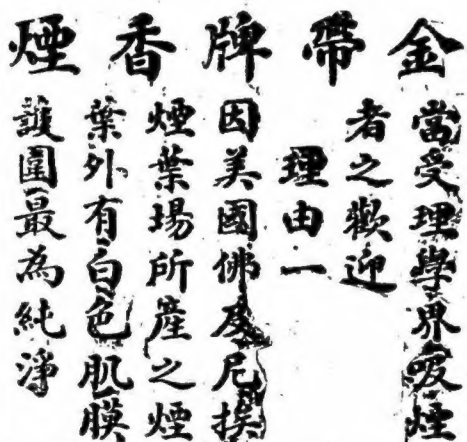 金帶牌香煙
當受理學界吸煙
者之歡迎
理由一
因美國佛及尼挨
煙葉場所產之煙
葉外有白色肌膜
護圍最為純淨